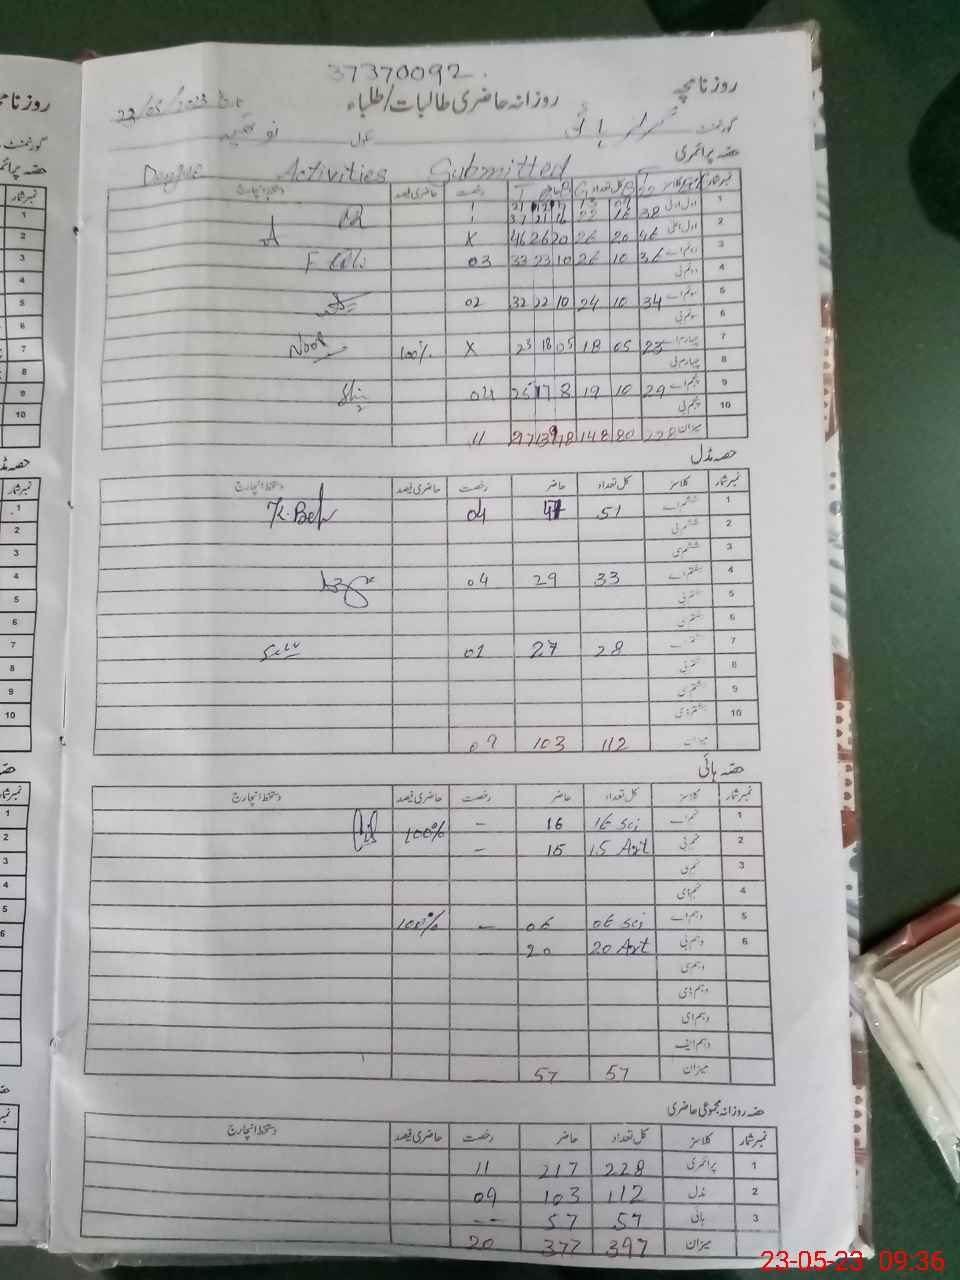 37370092.
روزنامچہ
روزانہ حاضری طالبات/طلباء
23/05/2023
گورنمنٹ ہائی سکول
حصہ پرائمری
Dengue Activities Submitted
نمبر شمار کلاسز کل تعداد حاضر رخصت حاضری فیصد دستخط انچارج
1 اول ادنیٰ
2 اول اعلیٰ 38 16 22
46 20 26 46 26 20 X
3 دوئم اے 36 10 26 33 23 10 03
4 دوئم بی
5 سوئم اے 34 10 24 32 22 10 02
6 سوئم بی
7 چہارم اے 23 05 18 23 18 05 X 100% Noor
8 چہارم بی
9 پنجم اے 29 10 19 25 17 8 04
10 پنجم بی
میزان 228 80 148 11
حصہ مڈل
نمبر شمار کلاسز کل تعداد حاضر رخصت حاضری فیصد دستخط انچارج
1 ششم اے 51 47 04
2 ششم بی
3 ششم سی
4 ہفتم اے 33 29 04
5 ہفتم بی
6 ہفتم سی
7 ہشتم اے 28 27 01
8 ہشتم بی
9 ہشتم سی
10 ہشتم ڈی
میزان 112 103 09
حصہ ہائی
نمبر شمار کلاسز کل تعداد حاضر رخصت حاضری فیصد دستخط انچارج
1 نہم اے 16 Sci 16 - 100%
2 نہم بی 15 Art 15 -
3 نہم سی
4 نہم ڈی
5 دہم اے 06 Sci 06 - 100%
6 دہم بی 20 Art 20
دہم سی
دہم ڈی
دہم ای
دہم ایف
میزان 57 57
حصہ روزانہ مجموعی حاضری
نمبر شمار کلاسز کل تعداد حاضر رخصت حاضری فیصد دستخط انچارج
1 پرائمری 228 217 11
2 مڈل 112 103 09
3 ہائی 57 57 --
میزان 397 377 20
23-05-23 09:36